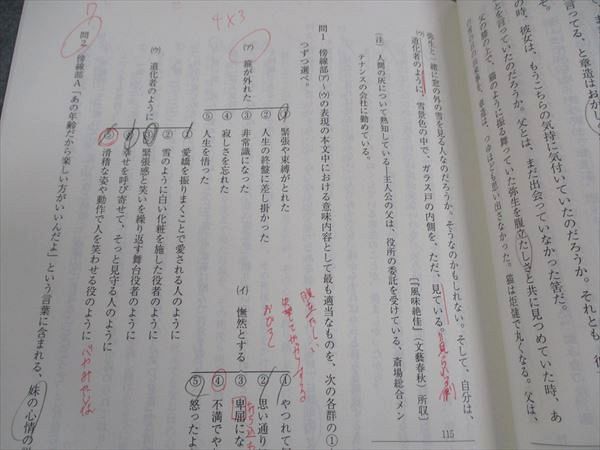 言ってる、と章造はおかし
の時、彼女は、もうこちらの気持に気付いていたのだろうか。それとも、彼
とを言っていたのだろうか。父とは、まだ出会っていなかった筈だ。
父の膝の上で、猫のように振る舞っていた弥生を腹立たしさと共に見つめていた時、あ
猫は炬燵で丸くなる。父は、
弥生と一緒に窓の外の雪を見る人なのだろうか。そうなのかもしれない。そして、自分は、
(ウ)道化者のように、雪景色の中で、ガラス戸の内側を、ただ、見ている。
〔『風味絶佳』(文藝春秋)所収〕
(注) 人間の灰について熟知している――主人公の父は、役所の委託を受けている、斎場総合メン
テナンスの会社に勤めている。
115
問1 傍線部(ア)~(ウ)の表現の本文中における意味内容として最も適当なものを、次の各群の①
つずつ選べ。
4×3
(ア) 箍が外れた
① 緊張や束縛がとれた
② 人生の終盤に差し掛かった
③ 非常識になった
④ 寂しさを忘れた
⑤ 人生を悟った
(イ) 憮然とする
腹立たしい
① やつれて
② 思い通り
③ 卑屈にな
④ 不満でや
⑤ 怒ったよ
(ウ) 道化者のように
① 愛嬌を振りまくことで愛される人のように
② 雪のように白い化粧を施した役者のように
③ 緊張感と笑いを繰り返す舞台役者のように
④ 幸せを呼び寄せて、そっと見守る人のように
⑤ 滑稽な姿や動作で人を笑わせる役のように
問2 傍線部A「あの年齢だから楽しい方がいいんだよ」という言葉に含まれる、妹の心情の
7